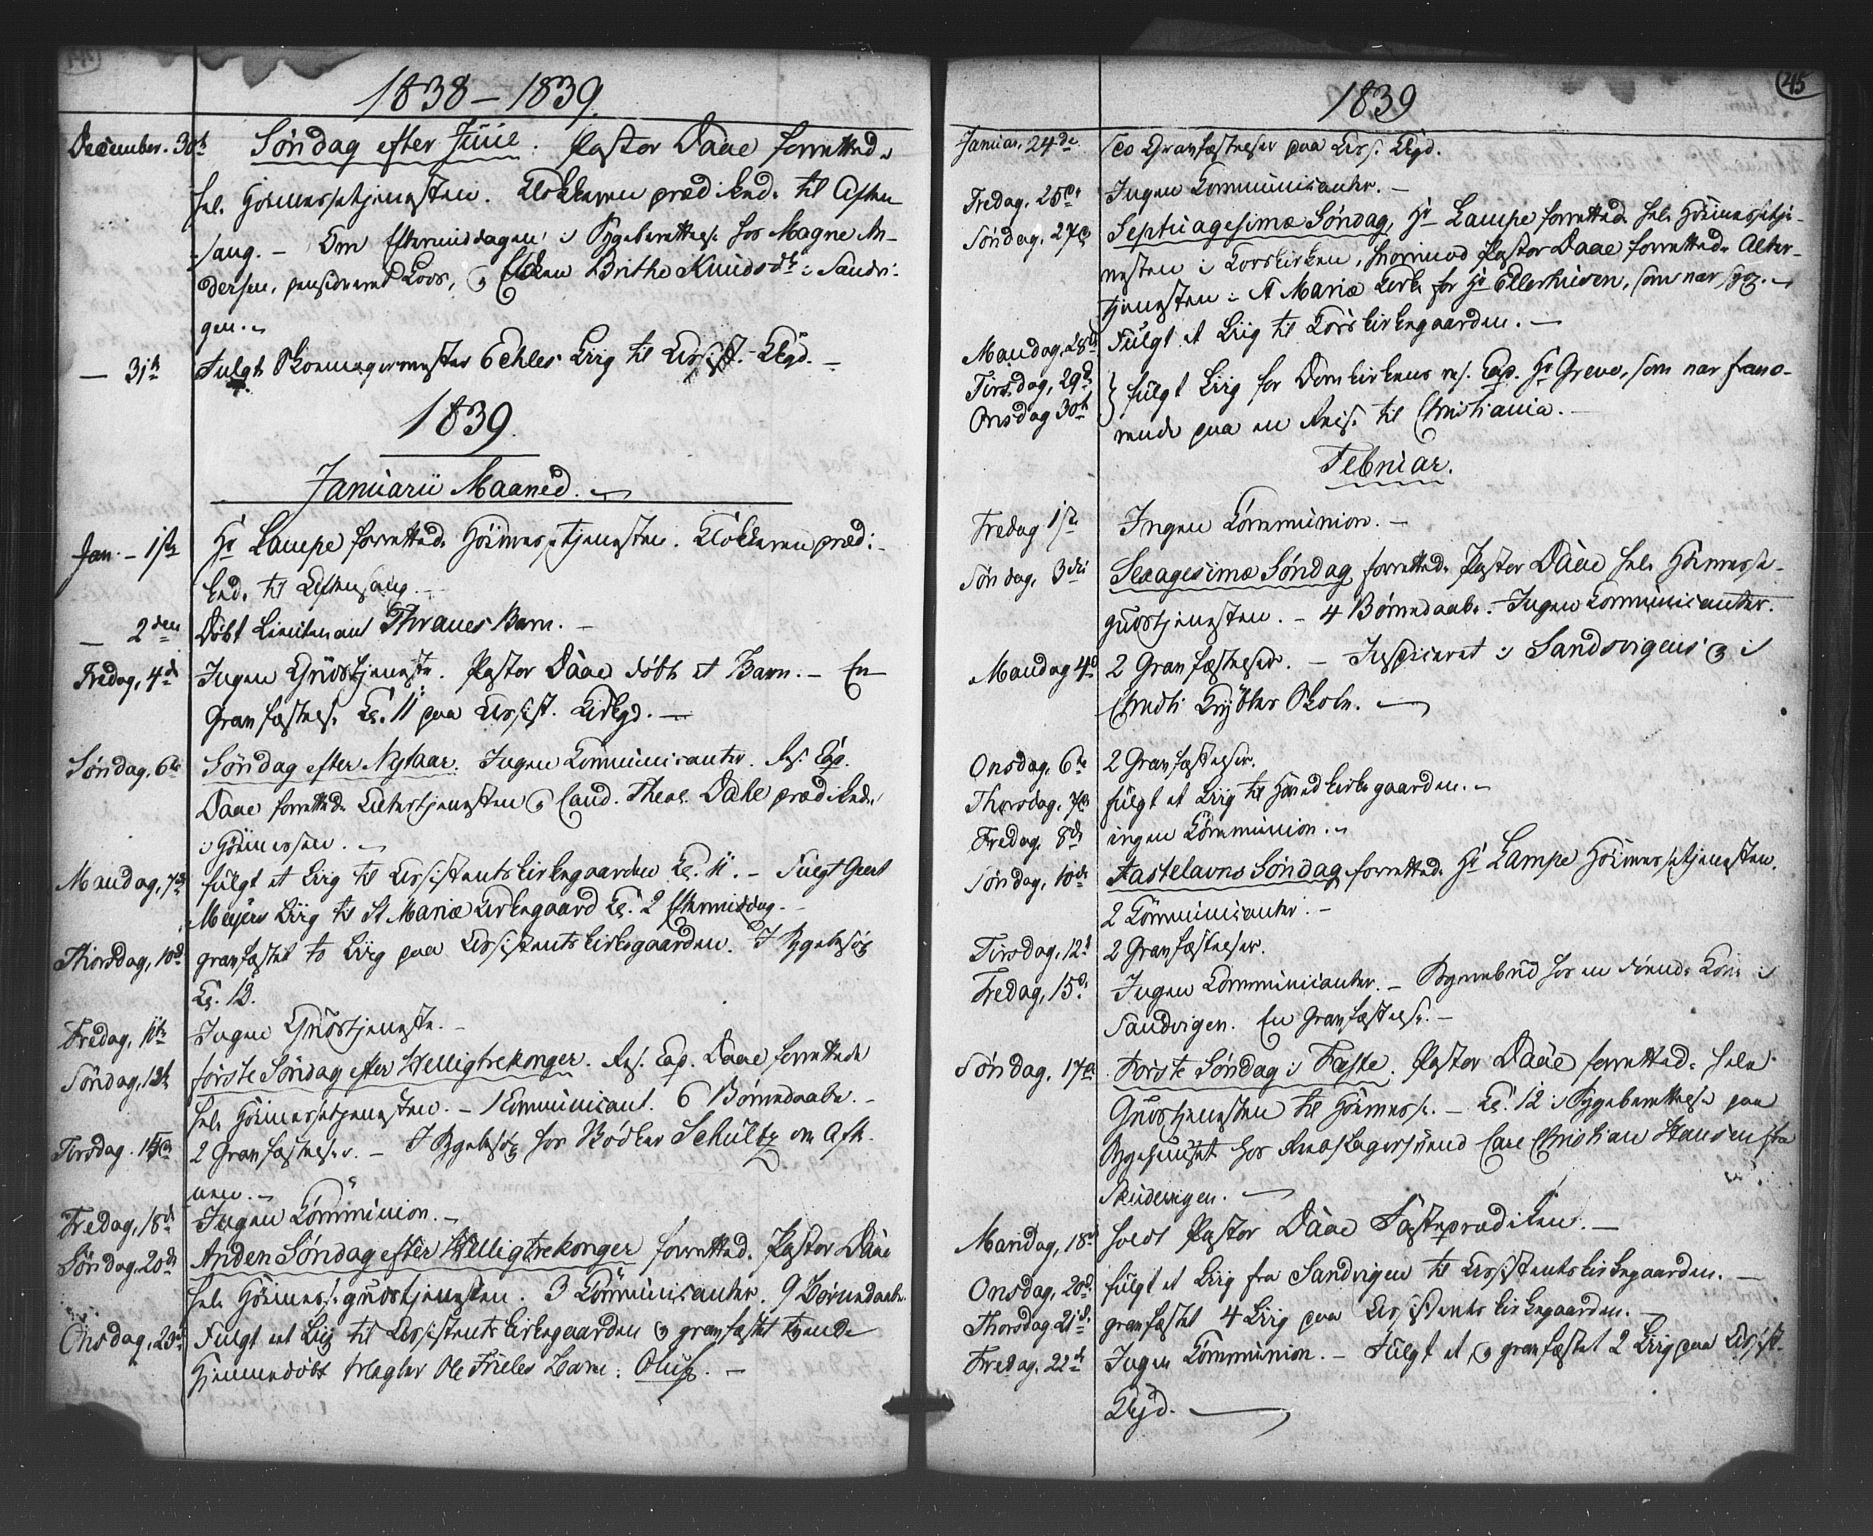 1838 – 1839.
December. 30te Søndag efter Juul. Pastor Daae forrettede
hele Høimessetjenesten. Klokkeren prædikede til Aften
sang. – Om Eftermiddagen i Sygeberettelse hos Magne An-
dersen, pensioneret Lods, og Enken Brithe Knudsdtr i Sandvi-
gen.
— 31te Fulgt Skomagermester Echles Liig til Assist. Kkgd. –
1839.
Januarii Maaned.
Jan. – 1ste Hr Lampe forrettede Høimessetjenesten. Klokkeren prædi-
kede til Aftensang.
— 2den Døbt Lieutenant Thranes Barn. –
Fredag, 4de Ingen Gudstjeneste. Pastor Daae døbte et Barn. – En
Gravfæstelse Kl. 11 paa Assist. Kirkgd. —
Søndag, 6te Søndag efter Nytaar. Ingen Communicanter. Res. Cap.
Daae forrettede Altertjenesten og Cand. Theol. Dahl prædikede
i Høimessen. –
Mandag, 7de fulgt et Liig til Assistentskirkegaarden Kl. 11. – Fulgt Geert
Meyers Liig til St Mariæ Kirkegaard Kl. 2 Eftermiddag. –
Thorsdag, 10de gravfæstet to Liig paa Assistentskirkegaarden. I Sygebesøg
Kl. 12.
Fredag, 11te Ingen Gudstjeneste. –
Søndag, 13de første Søndag efter Helligtrekonger. Res. Cap. Daae forrettede
hele Høimessetjenesten. – 1 Communicant. 6 Børnedaabe. –
Tirsdag. 15de 2 Gravfæstelser. – I Sygebesøg hos Bødker Schültz om Aft-
nen. –
Fredag, 18de Ingen Communion. –
Søndag, 20de Anden Søndag efter Helligtrekonger forrettede Pastor Daae
hele Høimessegudstjenesten. 3 Communicanter. 9 Børnedaabe.
Onsdag, 23de Fulgt et Liig til Assistentskirkegaarden og gravfæstet tvende
Hjemmedøbt Mægler Ole Frieles Barn: Oluf. –
45
1839
Januar. 24de to Gravfæstelser paa Ass. Kkgd.
Fredag, 25de Ingen Communicanter. –
Søndag, 27de Septuagesimæ Søndag, Hr Lampe forrettede hele Høimessetje-
nesten i Korskirken, hvorimod Pastor Daae forrettede Alter-
tjenesten i St Mariæ Kirke for Hr Ellerhusen, som var syg. –
Mandag, 28de Fulgt et Liig til Korskirkegaarden. –
Tirsdag, 29de
Onsdag 30te } fulgt Liig for Domkirkens res. Cap. Hr Greve, som var fravæ-
rende paa en Reise til Christiania. –
Februar.
Fredag 1ste Ingen Communion. –
Søndag, 3die Sexagesimæ Søndag forrettede Pastor Daae hele Høimesse-
gudstjenesten. – 4 Børnedaabe. Ingen Communicanter.
Mandag 4de 2 Gravfæstelser. – Inspiceret i Sandsvigens og i
Christi Krybbes Skole. —
Onsdag, 6te 2 Gravfæstelser.
Thorsdag, 7de fulgt et Liig til Hovedkirkegaarden. –
Fredag, 8de ingen Communion. –
Søndag, 10de Fastelavns Søndag forrettede Hr Lampe Høimessetjenesten.
2 Communicanter. –
Tirsdag, 12te 2 Gravfæstelser.
Fredag, 15de Ingen Communicanter. – Sognebud hos en døende Kone i
Sandvigen. En Gravfæstelse. –
Søndag, 17de Første Søndag i Faste. Pastor Daae forrettede hele
Gudstjenesten til Høimesse. – Kl. 12 i Sygeberettelse paa
Sygehuset hos Rebslagersvend Carl Christian Hansen fra
Skudevigen. —
Mandag, 18de holdt Pastor Daae Fasteprædiken. –
Onsdag, 20de fulgt et Liig fra Sandvigen til Assistentskirkegaarden. –
Thorsdag 21de gravfæstet 4 Liig paa Assistentskirkegaarden. –
Fredag, 22de Ingen Communion. – Fulgt et, og gravfæstet 2 Liig paa Assist.
Kkgd. —